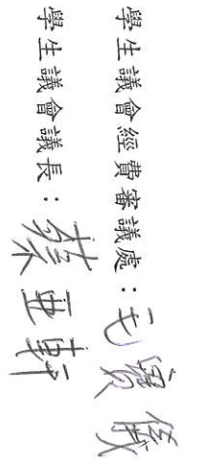 學生議會經費審議處：
學生議會議長：蔡亞軒